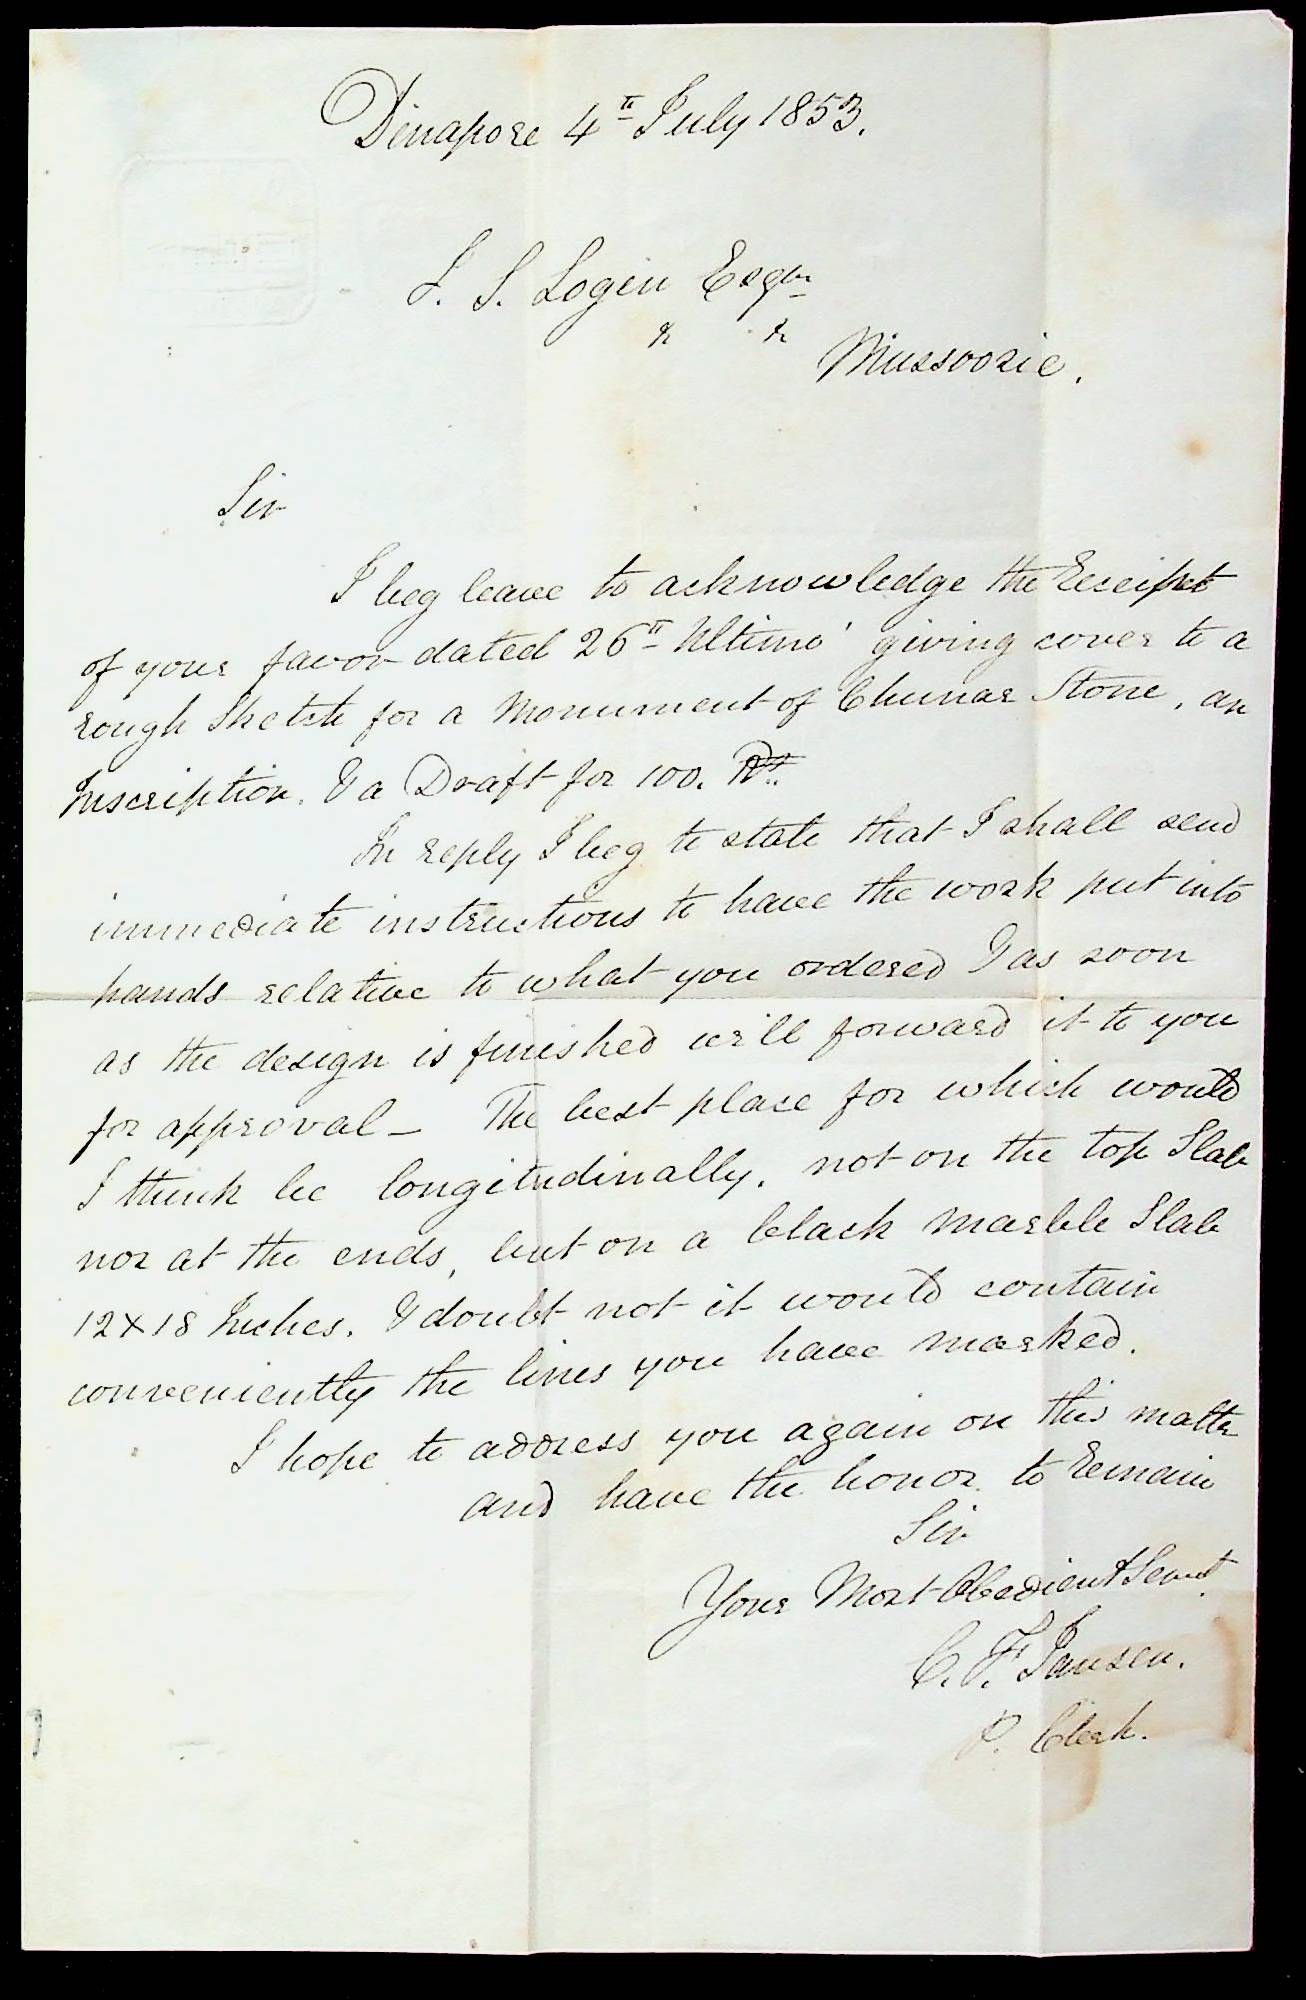 Dinapore 4th July 1853.
J. S. Login Esqr
&c &c
Mussoorie.
Sir
I beg leave to acknowledge the Receipt
of your favor dated 26th Ultimo giving cover to a
rough Sketch for a Monument of Chunar Stone, an
Inscription, & a Draft for 100. Rs.
In reply I beg to state that I shall send
immediate instructions to have the work put into
hands relative to what you ordered & as soon
as the design is finished will forward it to you
for approval – The best place for which would
I think be longitudinally, not on the top Slab
nor at the ends, but on a black marble Slab
12 x 18 Inches. I doubt not it would contain
conveniently the lines you have marked.
I hope to address you again on this matter
and have the honor to Remain
Sir
Your Most Obedient Servt.
C. F. Jansen.
P. Clerk.